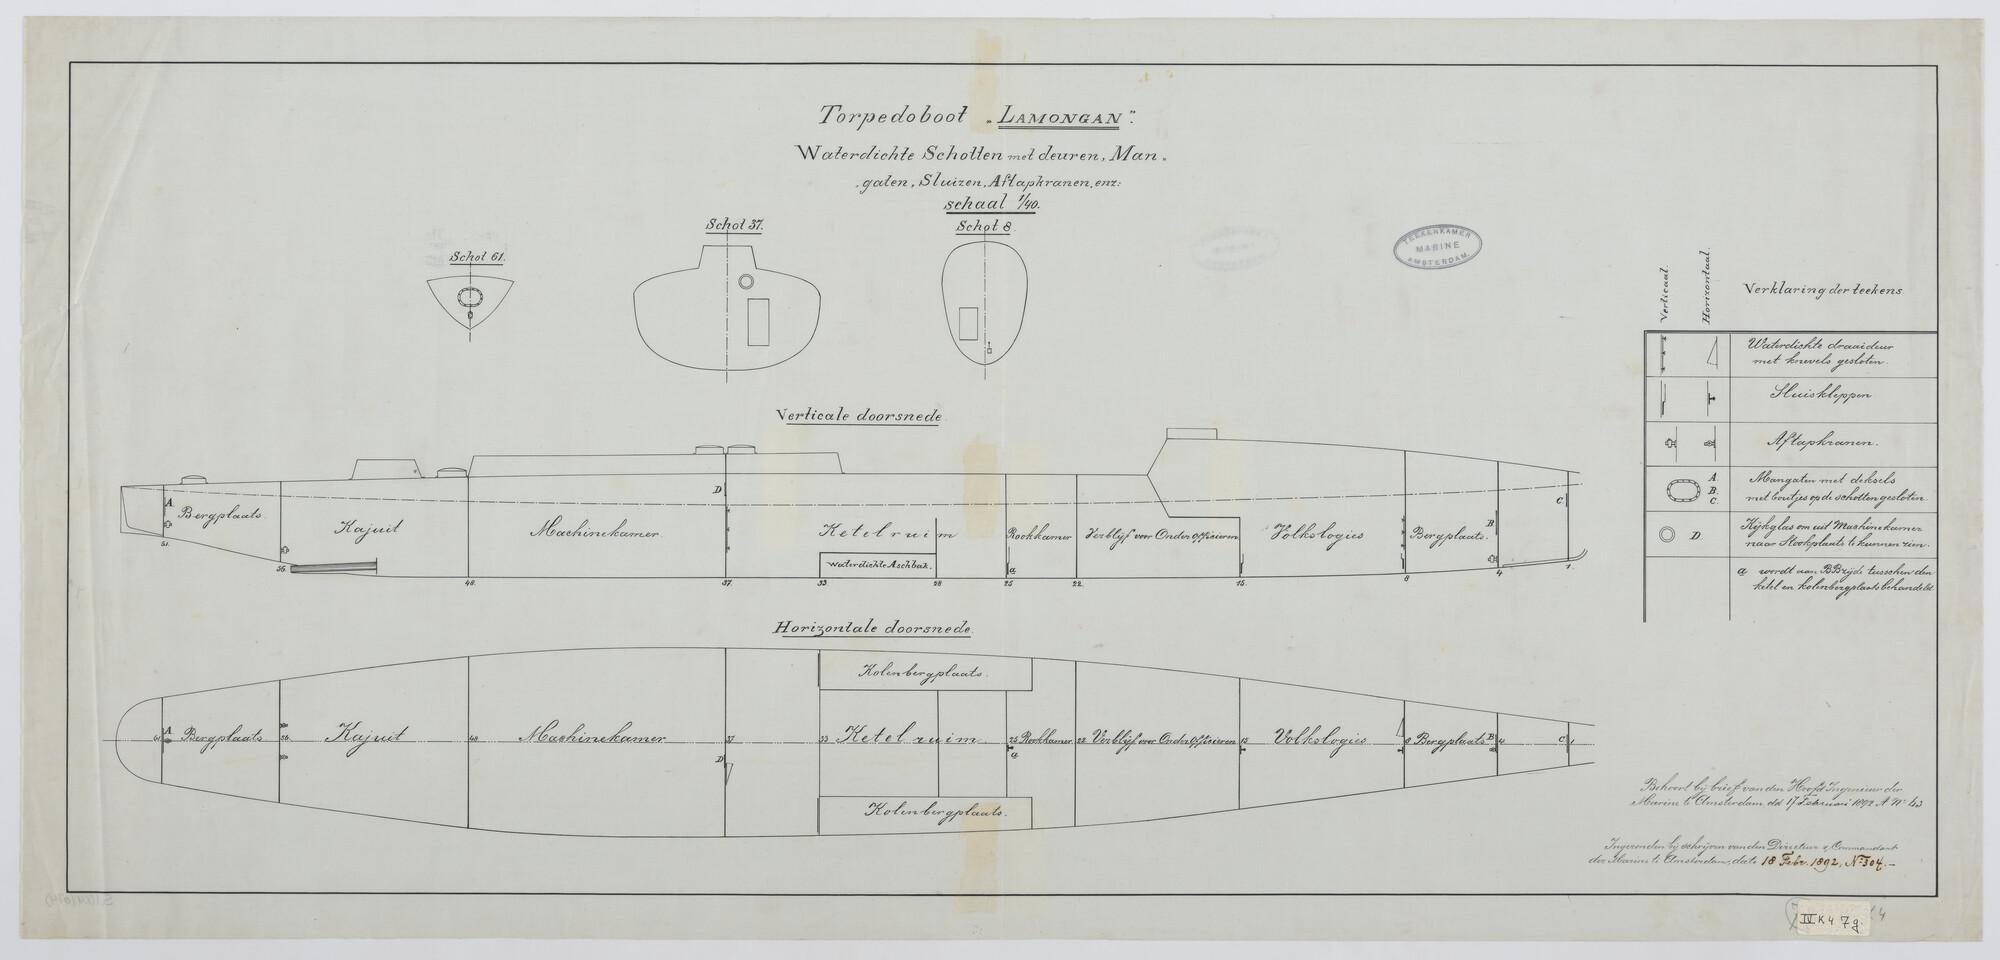 Torpedoboot „Lamongan".
Waterdichte Schotten met deuren, Man„
„gaten, Sluizen, Aftapkranen, enz:
schaal 1/40.
Schot 61.
Schot 37.
Schot 8.
TEEKENKAMER
MARINE
AMSTERDAM.
Verticaal.
Horizontaal.
Verklaring der teekens.
Waterdichte draaideur
met knevels gesloten.
Sluiskleppen
Aftapkranen.
A.
B.
C.
Mangaten met deksels
met boutjes op de schotten gesloten.
D.
Kijkglas om uit Machinekamer
naar Stookplaats te kunnen zien.
a wordt aan BBzijde tusschen den
ketel en kolenbergplaats behandeld.
Verticale doorsnede.
A
Bergplaats
Kajuit
Machinekamer
D
Ketelruim
Waterdichte Aschbak.
Rookkamer
a
Verblijf voor Onderofficieren
Volkslogies
Bergplaats.
B
C
51. 56. 48. 37. 33. 28 25 22. 15. 8 4 1.
Horizontale doorsnede.
Kolenbergplaats.
61 A Bergplaats 56. Kajuit 48 Machinekamer 37 33 Ketelruim 25 Rookkamer 22 Verblijf voor Onderofficieren 15 Volkslogies 8 Bergplaats B 4 C 1
D
a
Kolenbergplaats.
Behoort bij brief van den Hoofd Ingenieur der
Marine te Amsterdam dd 17 Februari 1892 A No 43
Ingezonden bij schrijven van den Directeur & Commandant
der Marine te Amsterdam, dato 18 Febr. 1892, No 304.-
IV K 4 7g.
4